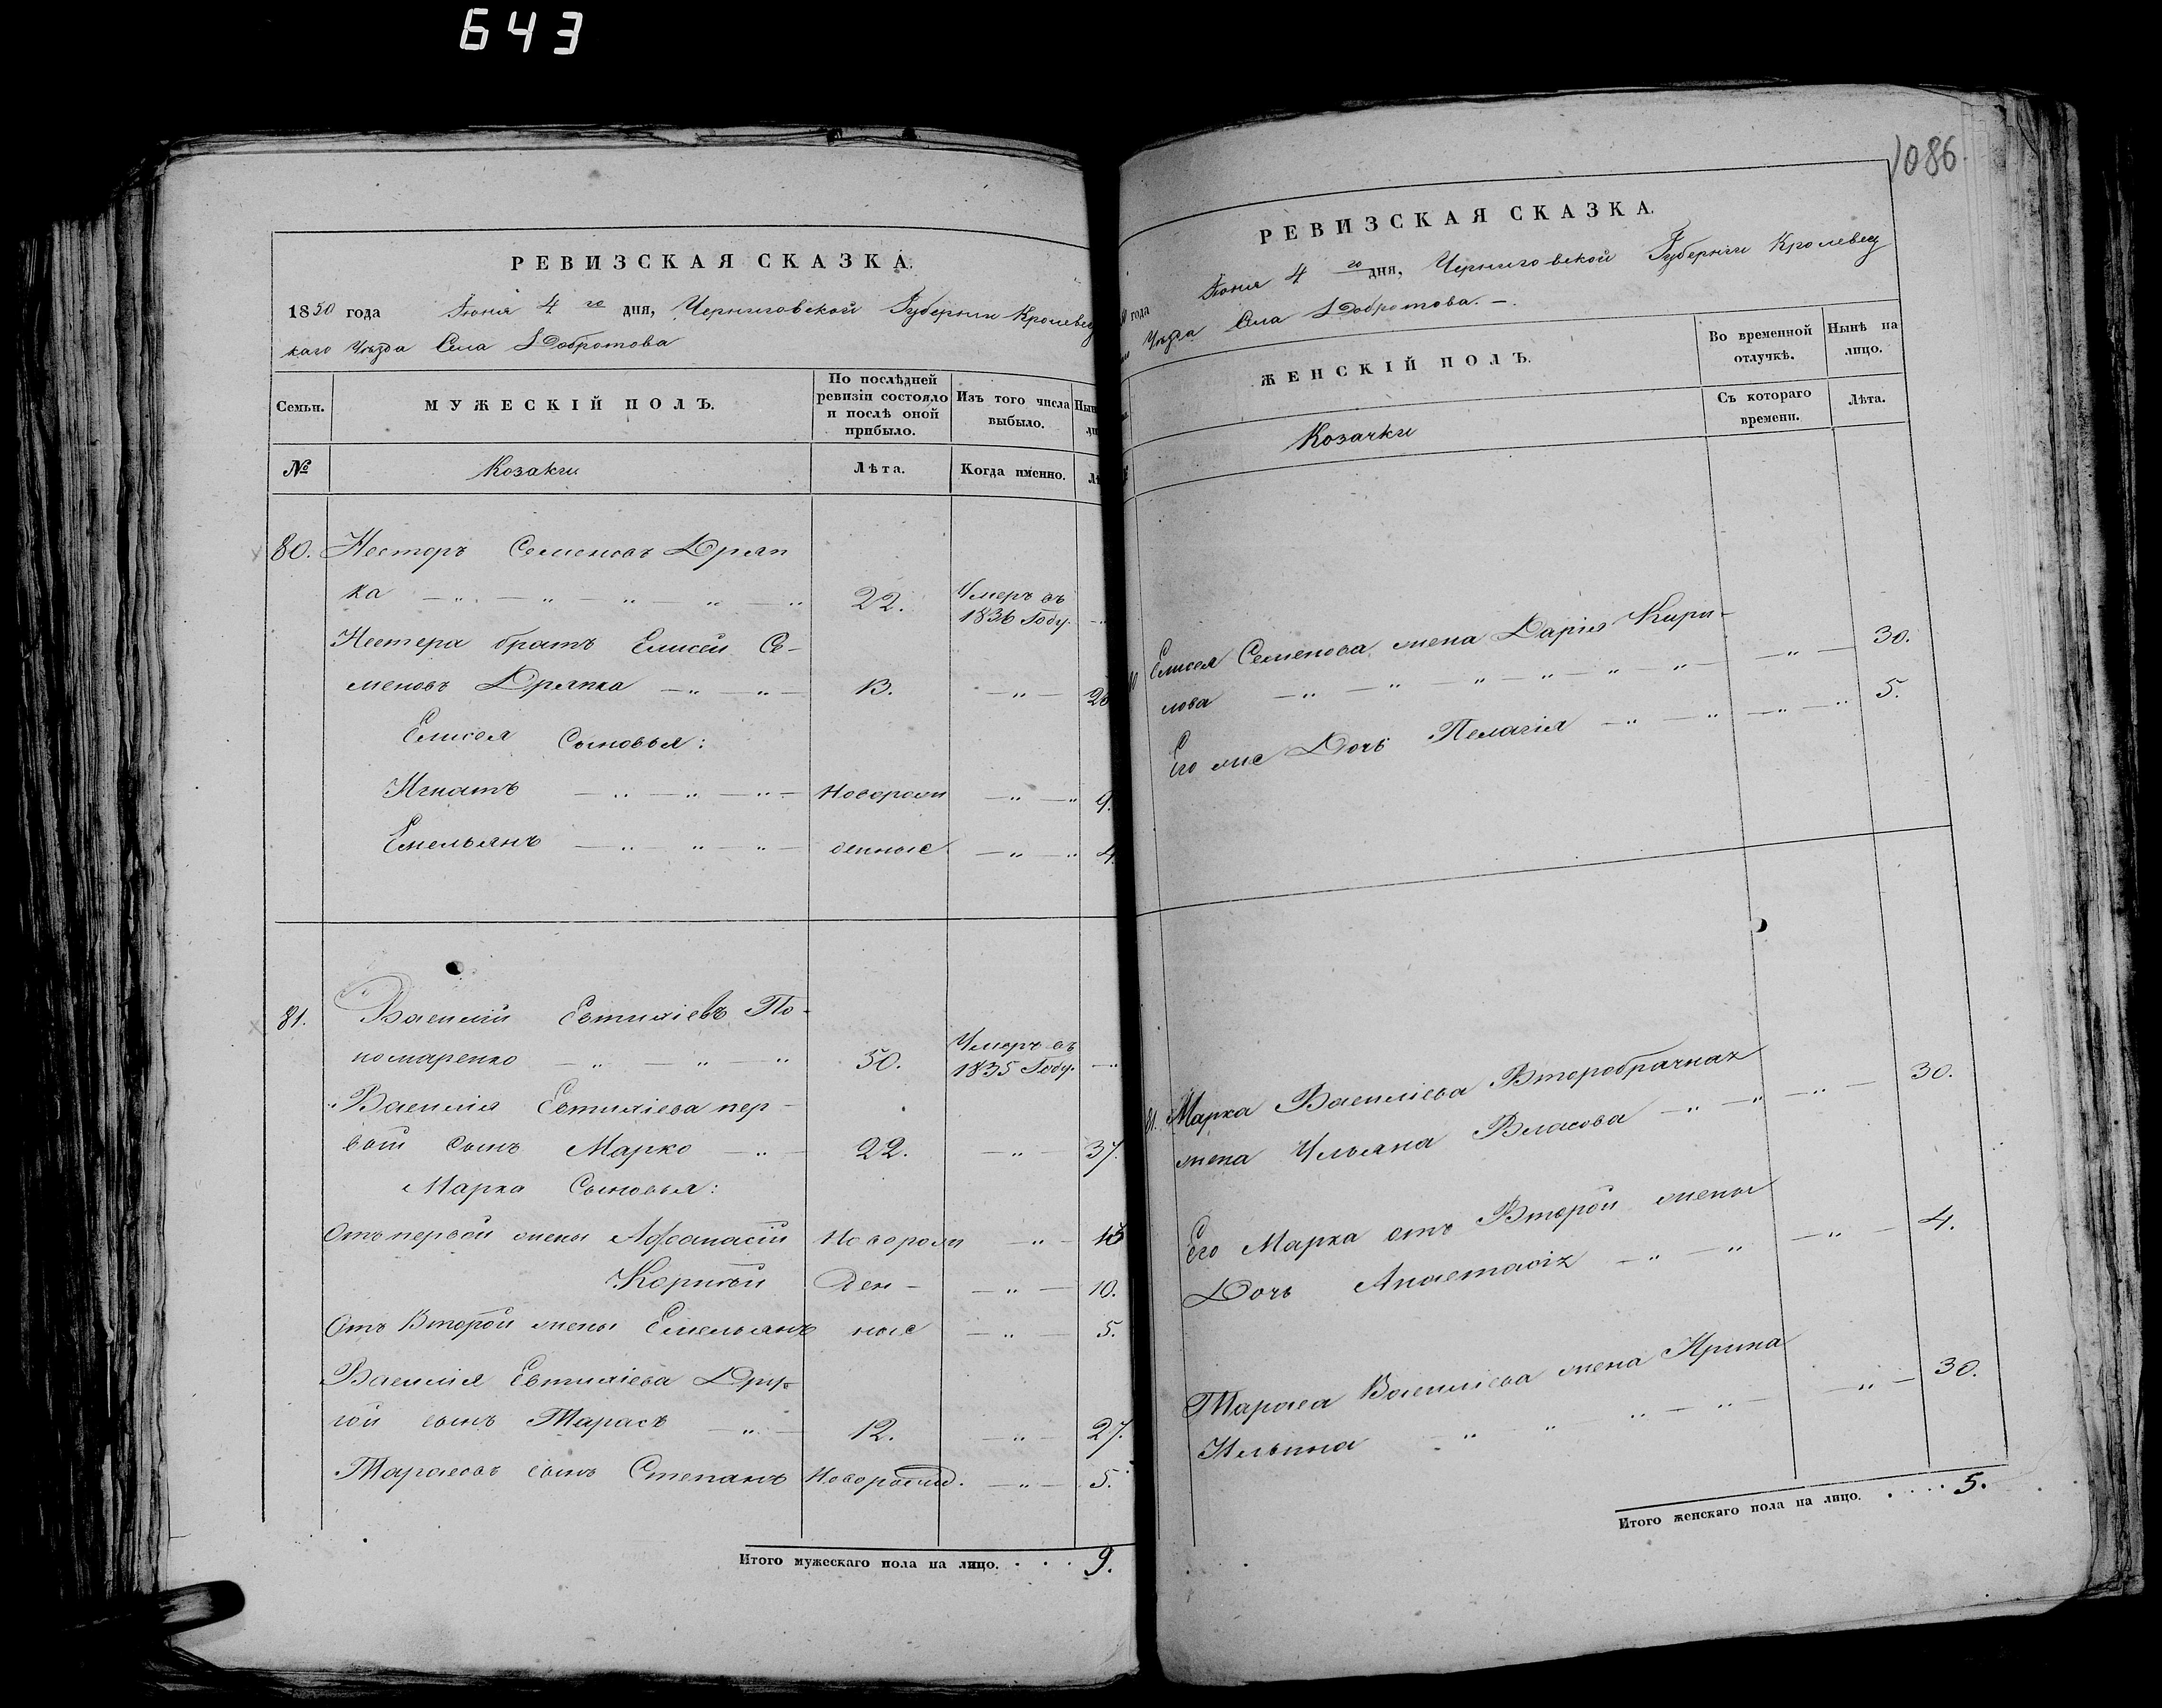 643
РЕВИЗСКАЯ СКАЗКА.
1850 года Іюня 4 го дня, Черниговской Губерніи Кролевец
каго Уѣзда Села Добротова
Семьи.
МУЖЕСКІЙ ПОЛЪ.
По послѣдней ревизіи состояло и послѣ оной прибыло.
Изъ того числа выбыло.
№
Козаки
Лѣта.
Когда имѣнно.
80. Несторъ Семеновъ Дряп
ка 22. Умеръ въ
1836 Году.
Нестера братъ Елисей Се-
меновъ Дряпка 13.
Елисея Сыновья:
Игнатъ Новорож 9.
Емельянъ денные 4.
81. Василий Евтихіевъ По-
номаренко 50. Умеръ въ
1835 Году.
Василія Евтихіева пер-
вой сынъ Марко 22. 37.
Марка Сыновья:
Отъ первой жены Афанасій Новорож
Корнѣй ден- 10.
Отъ Второй жены Емельянъ ные 5.
Василія Евтихіева Дру-
гой сынъ Тарасъ 12. 27.
Тарасовъ сынъ Степанъ Новорожд. 5.
Итого мужескаго пола на лицо. . . . 9.
1086.
РЕВИЗСКАЯ СКАЗКА.
года Іюня 4 го дня, Черниговской Губерніи Кролевец
Уѣзда Села Добротова.
ЖЕНСКІЙ ПОЛЪ.
Во временной отлучкѣ.
Нынѣ на лицо.
Козачки
Съ котораго времени.
Лѣта.
Елисея Семенова жена Дарія Кири-
лова 30.
Его же Дочь Пелагія 5.
81. Марка Василіева Второбрачная
жена Ульяна Власова 30.
Его Марка отъ Второй жены
Дочь Анастасія 4.
Тараса Василіева жена Ирина
Ильина 30.
Итого женскаго пола на лицо. . . . . 5.